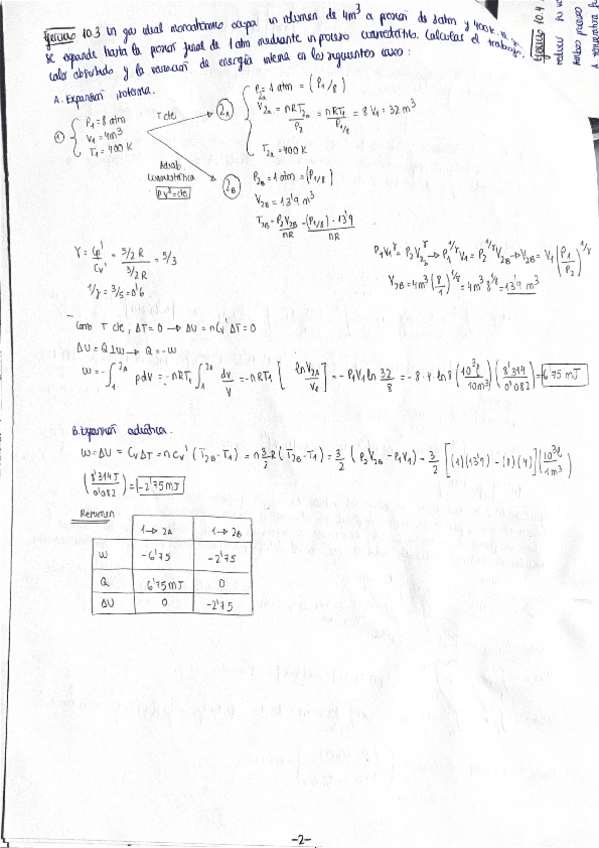 Ejercicio 10.3 Un gas ideal monoatómico ocupa un volumen de 4m³ a presión de 8 atm y 400K.
Se expande hasta la presión final de 1 atm mediante un proceso cuasiestático. Calcular el trabajo,
calor absorbido y la variación de energía interna en los siguientes casos:
A. Expansión isoterma.
① { P₁ = 8 atm
V₁ = 4m³
T₁ = 400 K
T cte
Adiab
Cuasiestática
PVᵞ = cte
2A { P₂ₐ = 1 atm = (P₁/8)
V₂ₐ = nRT₂ₐ/P₂ = nRT₁/P₁/8 = 8 V₁ = 32 m³
T₂ₐ = 400 K
2B P₂B = 1 atm = (P₁/8)
V₂B = 13'9 m³
T₂B = P₂V₂B/nR = (P₁/8) · 13'9/nR
γ = Cp'/Cv' = 5/2 R / 3/2 R = 5/3
1/γ = 3/5 = 0'6
P₁V₁ᵞ = P₂V₂ᵞ → P₁^1/γ V₁ = P₂^1/γ V₂B → V₂B = V₁ (P₁/P₂)^1/γ
V₂B = 4m³ (8/1)^1/γ = 4m³ 8^1/γ = 13'9 m³
- Como T cte, ΔT = 0 → ΔU = nCv' ΔT = 0
ΔU = Q + W → Q = -W
W = - ∫₁^2A pdV = -nRT₁ ∫₁^2A dV/V = -nRT₁ [ ln V2A/V₁ ] = - P₁V₁ ln 32/8 = -8 · 4 · ln 8 (10³l/10m³) (8'314/0'082) = 6'75 mJ
B. Expansión adiabática.
W = ΔU = CvΔT = nCv' (T₂B - T₁) = n 3/2 R (T₂B - T₁) = 3/2 (P₂V₂B - P₁V₁) = 3/2 [(1)(13'9) - (8)(4)] (10³l/1m³)
(8'314J/0'082) = -2'75 mJ
Resumen
1→2A 1→2B
W -6'75 -2'75
Q 6'75 mJ 0
ΔU 0 -2'75
-2-
Ejercicio 10.4
reducir su v
Ambos procesos
A temperatura